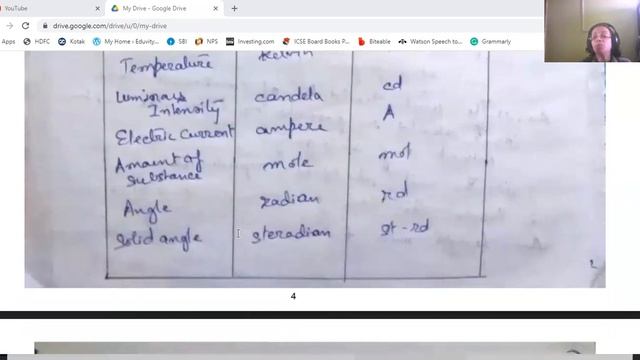 YouTube
My Drive - Google Drive
drive.google.com/drive/u/0/my-drive
Apps
HDFC
Kotak
My Home : Eduvity...
SBI
NPS
Investing.com
ICSE Board Books P...
Biteable
Watson Speech to...
Grammarly
Temperature Kelvin
Luminous Intensity candela cd
Electric Current ampere A
Amount of substance mole mol
Angle radian rd
Solid angle steradian st-rd
4